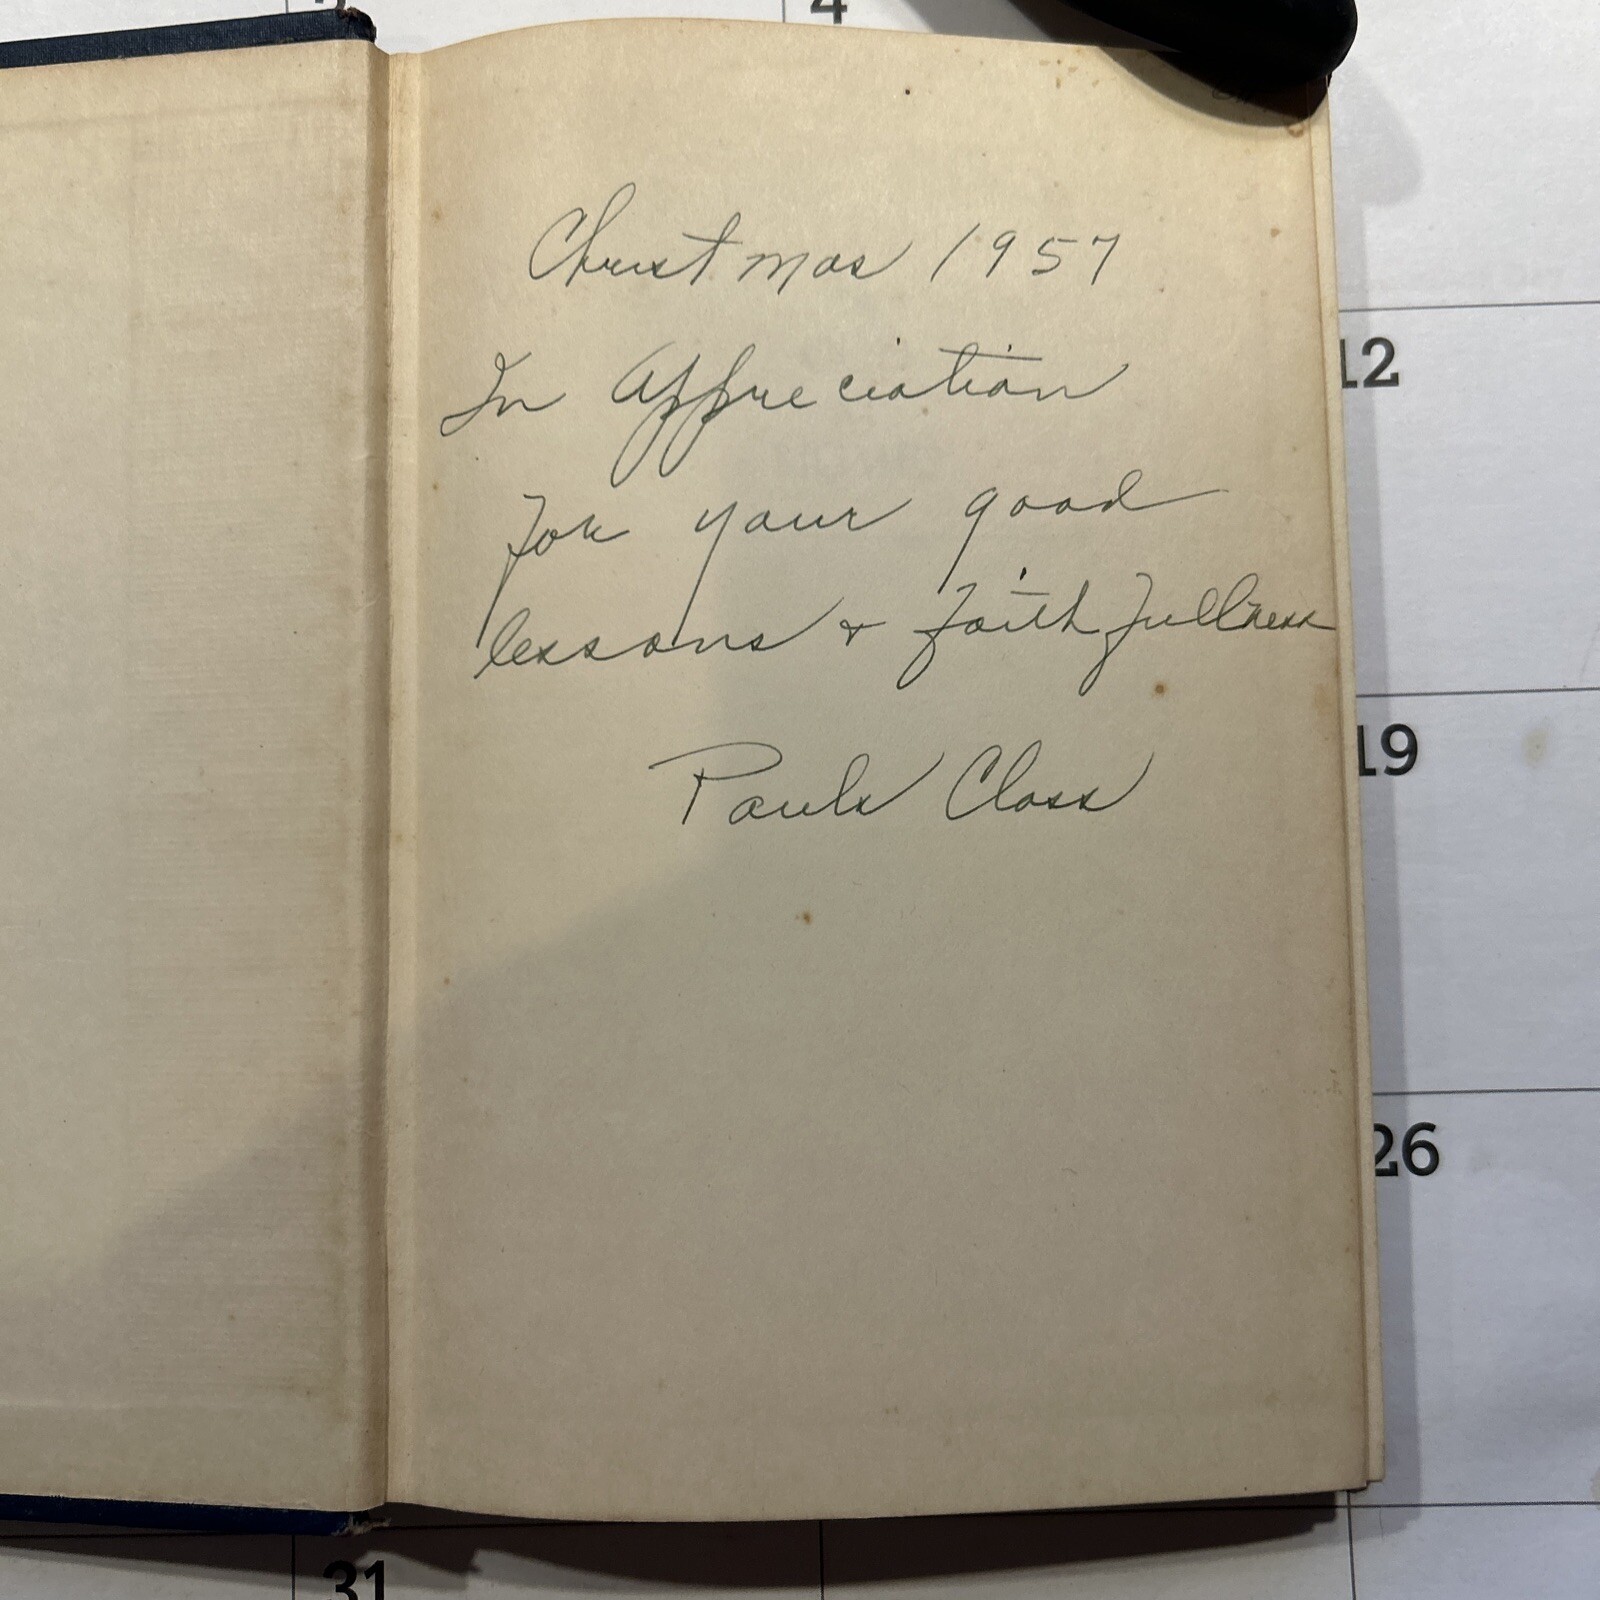 4
Christmas 1957
In Appreciation
for your good
lessons & faithfullness
Pauls Class
12
19
26
31